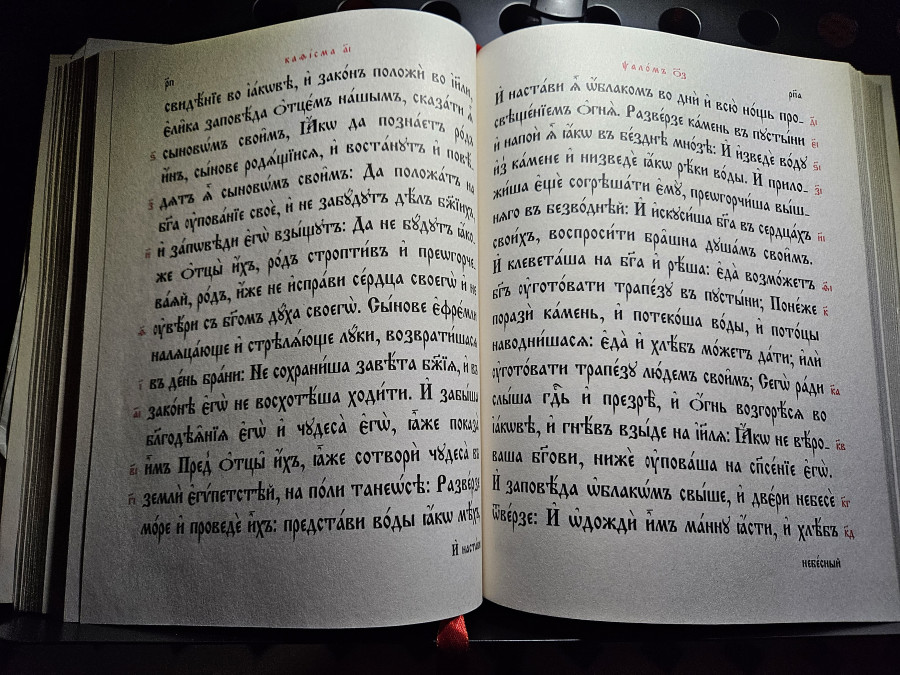 рп҃ каѳі́сма а҃і
свидѣ́нїе во і҆а́кѡвѣ, и҆ зако́нъ положѝ во і҆и҃ли,
є҆ли̑ка заповѣ́да ѻ҆тцє́мъ на́шымъ, сказа́ти ѧ҆̀
ѕ҃ сыновѡ́мъ свои̑мъ, Ꙗ҆́кѡ да позна́етъ ро́дъ
и҆́нъ, сы́нове родѧ́щїисѧ, и҆ воста́нутъ и҆ повѣ́-
з҃ дѧтъ ѧ҆̀ сыновѡ́мъ свои̑мъ: Да положа́тъ на
бг҃а ᲂу҆пова́нїе своѐ, и҆ не забꙋ́дꙋтъ дѣ́лъ бж҃їихъ,
и҃ и҆ за́пѡвѣди є҆гѡ̀ взы́щꙋтъ: Да не бꙋ́дꙋтъ ꙗ҆́ко-
же ѻ҆тцы̀ и҆́хъ, ро́дъ стропти́въ и҆ преѡгорче-
ва́ѧй, ро́дъ, и҆́же не и҆спра́ви се́рдца своегѡ̀ и҆ не
ѳ҃ ᲂу҆вѣ́ри съ бг҃омъ дꙋ́ха своегѡ̀. Сы́нове є҆фре́мли
налѧца́юще и҆ стрѣлѧ́юще лꙋ́ки, возврати́шасѧ
і҃ въ де́нь бра́ни: Не сохрани́ша завѣ́та бж҃їѧ, и҆ въ
а҃і зако́нѣ є҆гѡ̀ не восхотѣ́ша ходи́ти. И҆ забы́ша
бл҃годѣѧ̑нїѧ є҆гѡ̀ и҆ чꙋдеса̀ є҆гѡ̀, ꙗ҆̀же показа̀
в҃і и҆̀мъ Пред̾ ѻ҆тцы̑ и҆́хъ, ꙗ҆̀же сотворѝ чꙋдеса̀ въ
г҃і землѝ є҆гѵ́петстѣй, на по́ли танеѡ́сѣ: Разве́рзе
мо́ре и҆ проведѐ и҆̀хъ: предста́ви во́ды ꙗ҆́кѡ мѣ́хъ
И҆ наста́ви
ѱало́мъ о҃з рп҃а
И҆ наста́ви ѧ҆̀ ѡ҆́блакомъ во днѝ и҆ всю̀ но́щь про- д҃і
свѣще́нїемъ ѻ҆гнѧ̀. Разве́рзе ка́мень въ пꙋсты́ни є҃і
и҆ напоѝ ѧ҆̀ ꙗ҆́кѡ въ бе́зднѣ мно́зѣ: И҆ и҆зведѐ во́дꙋ ѕ҃і
и҆з̾ ка́мене и҆ низведѐ ꙗ҆́кѡ рѣ́ки во́ды. И҆ прило- з҃і
жи́ша є҆щѐ согрѣша́ти є҆мꙋ̀, преѡгорчи́ша вы́ш-
нѧго въ безво́днѣй: И҆ и҆скꙋси́ша бг҃а въ сердца́хъ и҃і
свои́хъ, воспроси́ти бра̑шна дꙋша́мъ свои̑мъ.
И҆ клевета́ша на бг҃а и҆ рѣ́ша: є҆да̀ возмо́жетъ ѳ҃і
бг҃ъ ᲂу҆гото́вати трапе́зꙋ въ пꙋсты́ни; Поне́же к҃
поразѝ ка́мень, и҆ потеко́ша во́ды, и҆ пото́цы
наводни́шасѧ: є҆да̀ и҆ хлѣ́бъ мо́жетъ да́ти; и҆лѝ
ᲂу҆гото́вати трапе́зꙋ лю́демъ свои̑мъ; Сегѡ̀ ра́ди к҃а
слы́ша гдⷭ҇ь и҆ презрѣ̀, и҆ ѻ҆́гнь возгорѣ́сѧ во
і҆а́кѡвѣ, и҆ гнѣ́въ взы́де на і҆и҃лѧ: Ꙗ҆́кѡ не вѣ́ро- к҃в
ваша бг҃ови, нижѐ ᲂу҆пова́ша на сп҃се́нїе є҆гѡ̀.
И҆ заповѣ́да ѡ҆блакѡ́мъ свы́ше, и҆ двє́ри небесѐ к҃г
ѿве́рзе: И҆ ѡ҆дождѝ и҆̀мъ ма́ннꙋ ꙗ҆́сти, и҆ хлѣ́бъ к҃д
небе́сный